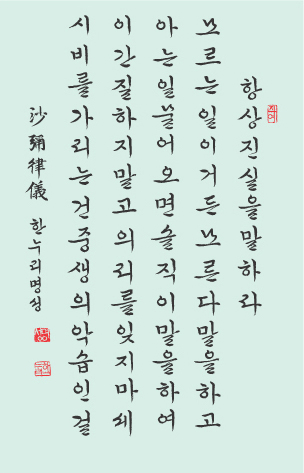 항상진실을말하라
모르는일이거든모른다말을하고
아는일물어오면솔직이말을하여
이간질하지말고의리를잊지마세
시비를가리는건중생의악습인걸
沙彌律儀 한누리명성